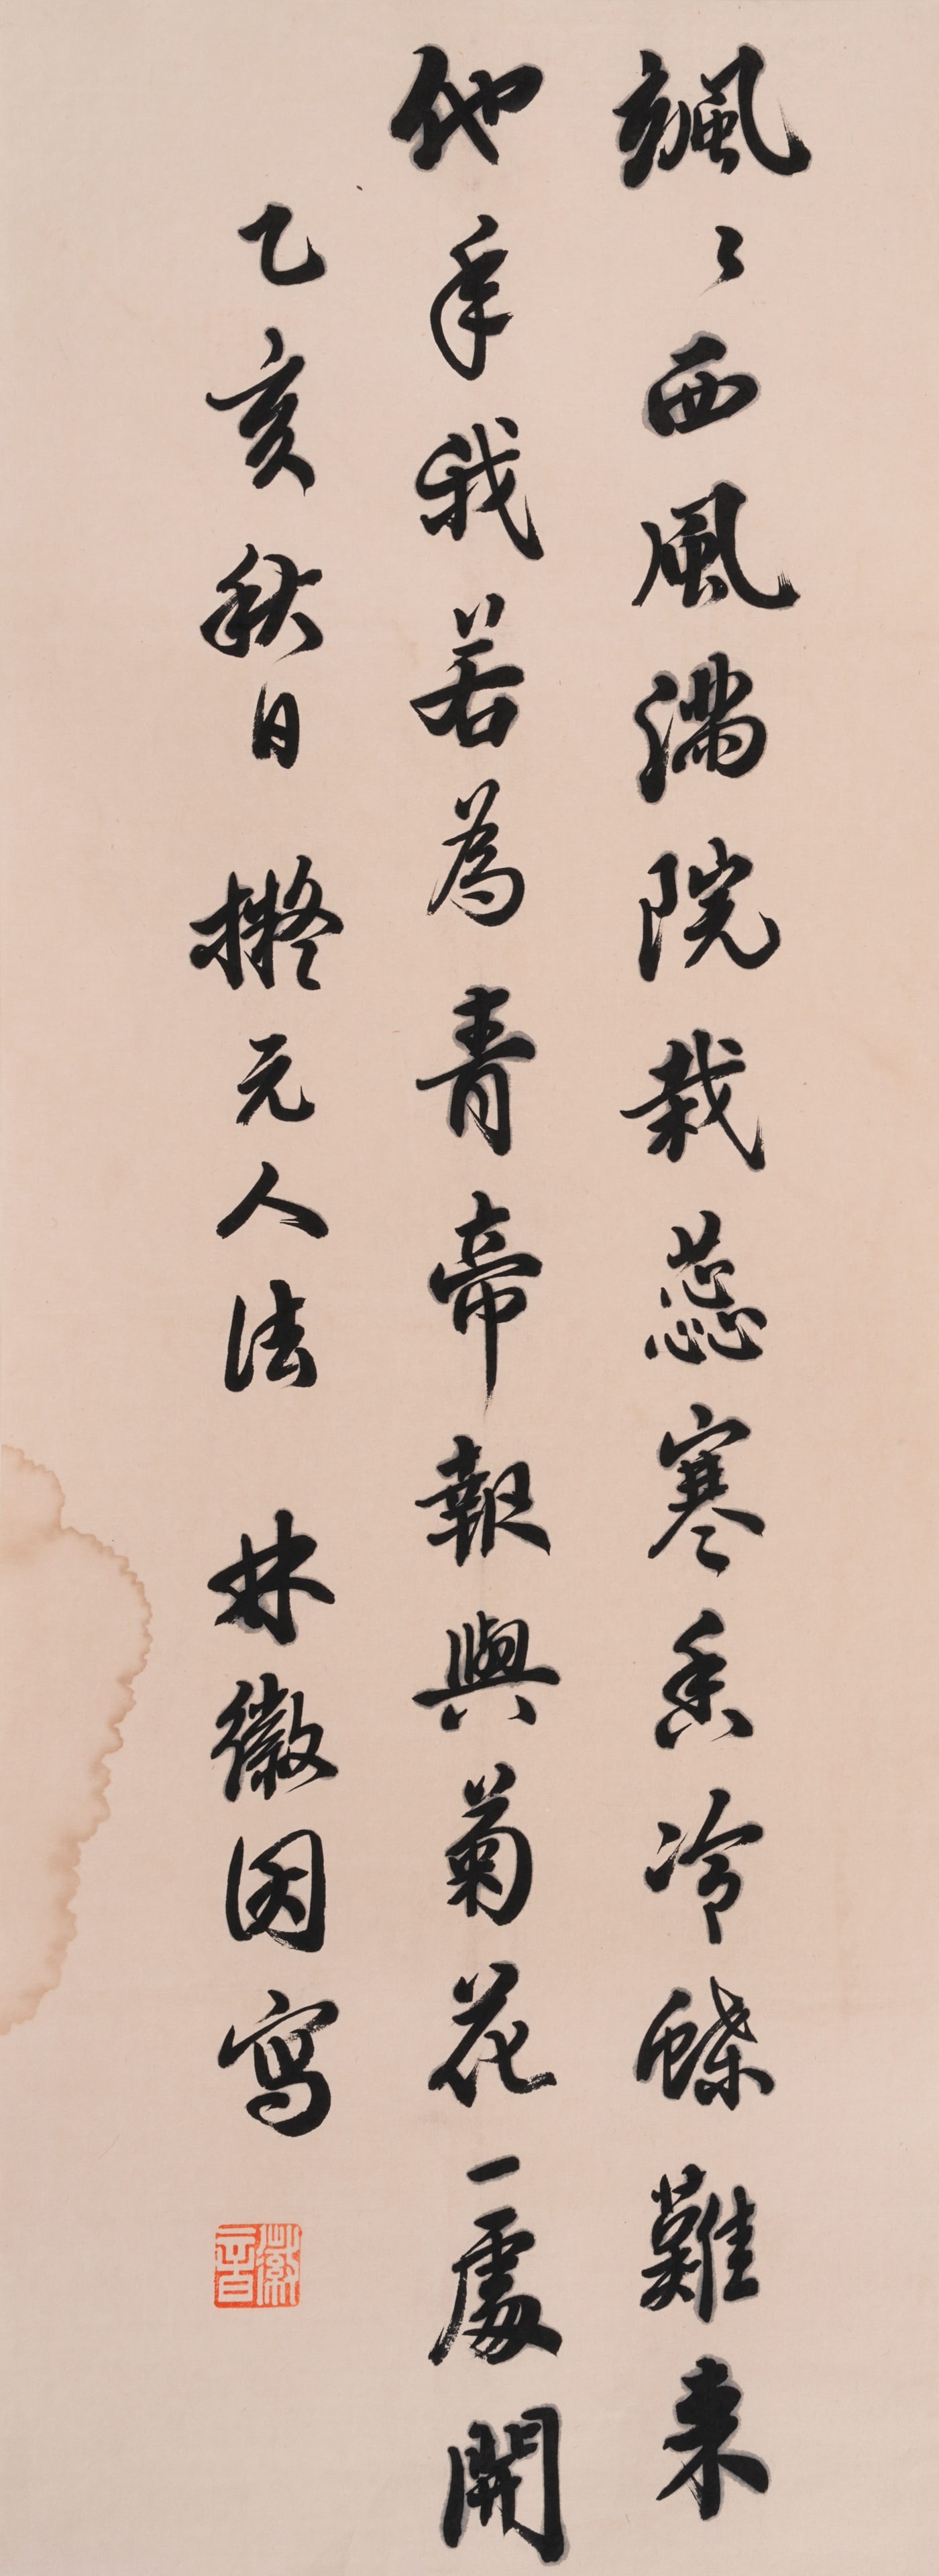 颯〻西風滿院栽蕊寒香冷蝶難来
他年我若為青帝報與菊花一處開
乙亥秋日 擬元人法 林徽因寫
徽音